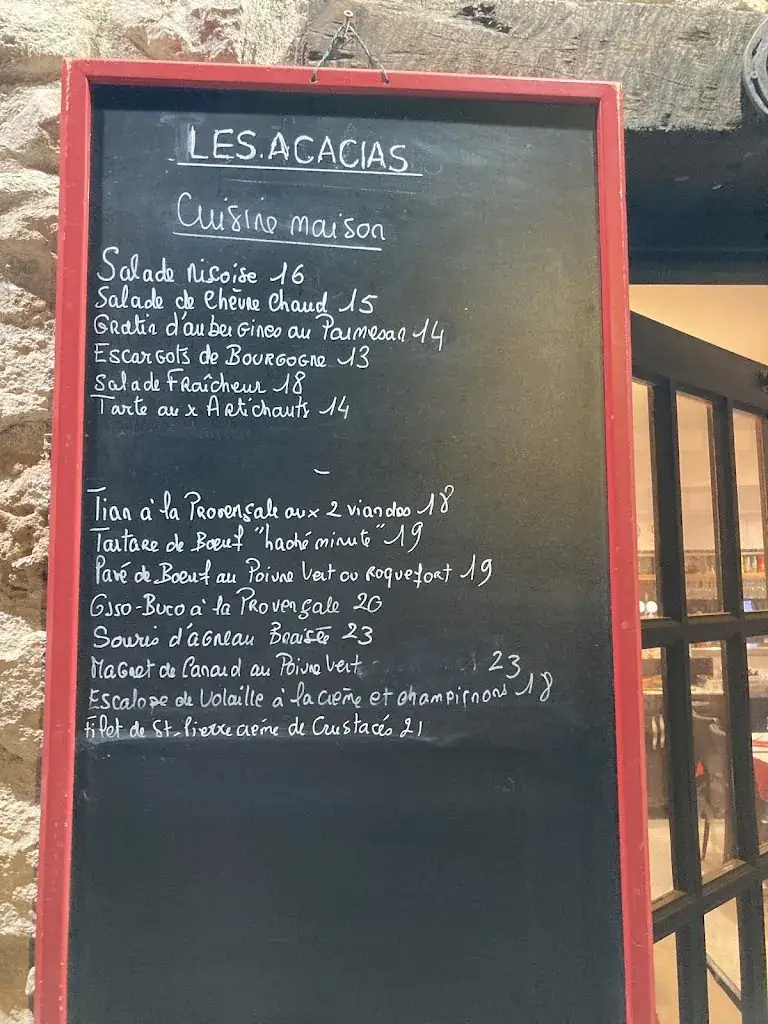 LES.ACACIAS
Cuisine maison
Salade niçoise 16
Salade de Chèvre Chaud 15
Gratin d'aubergines au Parmesan 14
Escargots de BOURGOGNE 13
Salade FRaîcheur 18
Tarte aux Artichauts 14
-
Tian à la Provençale aux 2 viandes 18
Tartare de Boeuf "haché minute" 19
Pavé de Boeuf au Poivre Vert ou Roquefort 19
Osso-Buco à la Provençale 20
Souris d'agneau Braisée 23
Magret de Canard au Poivre Vert 23
Escalope de Volaille à la crème et champignons 18
Filet de St-Pierre crème de Crustacés 21